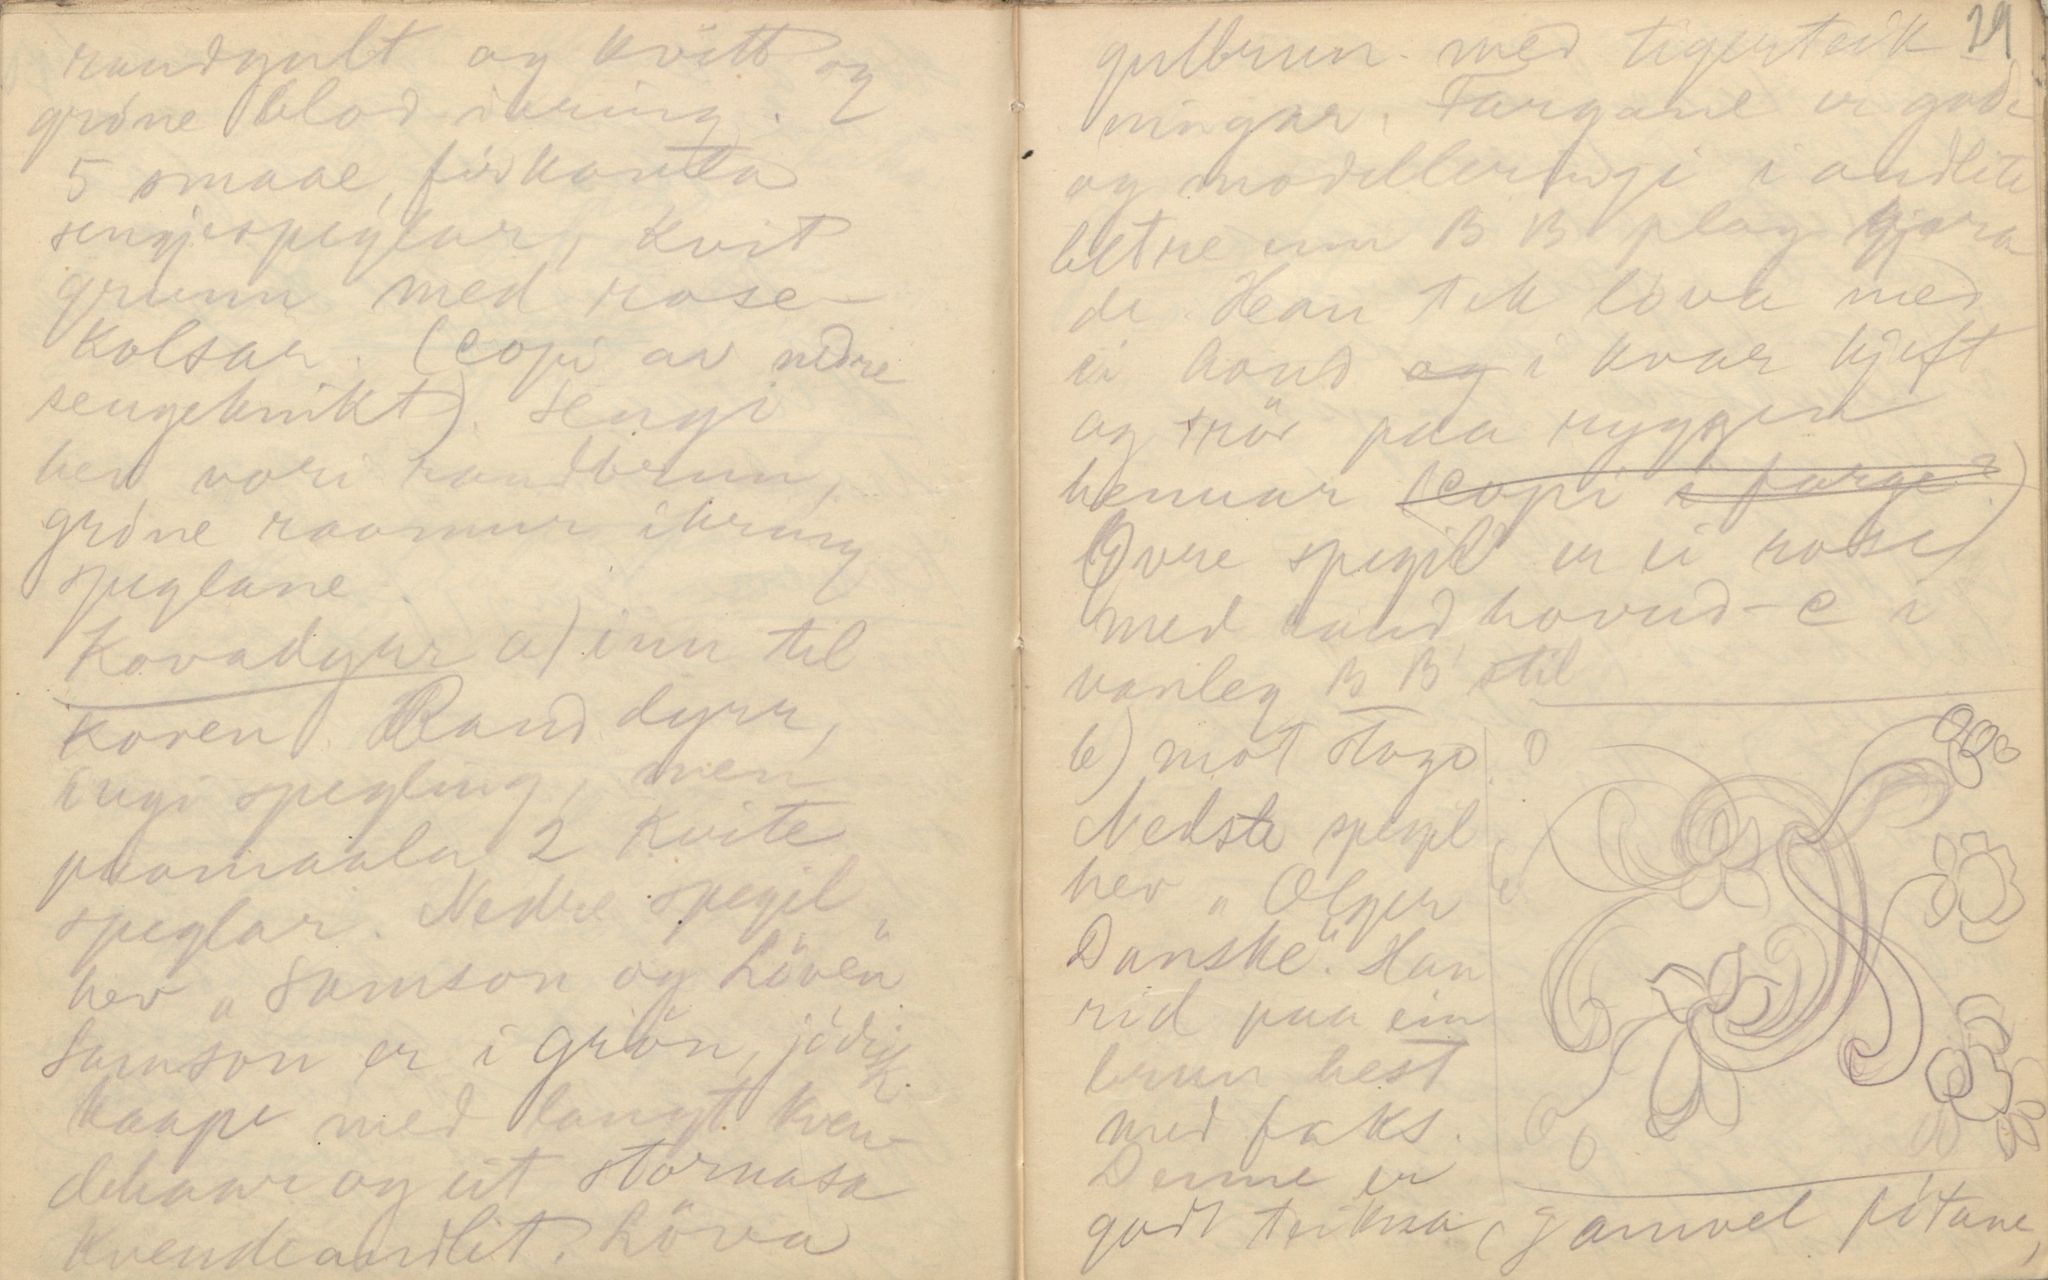 raudgult og kvitt og
gröne blad ikring.
5 smaae, firkanta
sengjespeglar, kvit
grunn med rose-
kolsar. (Copi av nedre
sengebrikt). Sengi
hev vori raudbrun,
gröne raamur ikring
speglane.
Kovadyrr a) inn til
koven. Raud dyrr,
ingi spegling, men
paamaala 2 kvite
speglar. Nedre spegil
hev „Samson og Löven"
Samson er i grön, jödisk
kaape med langt kven-
dehaar og eit stornasa
kvendeandlit. Löva
29
gulbrun med tigerteik
ningar. Fargane er gode
og modelleringi i andlite
betre enn B B plag gjera
de. Han tek löva med
ei hand og i kvar kjeft
og trör paa ryggen
hennar (Copi i farge?)
Övre spegil er ei rose
med raud hovud-C i
vanleg B B stil
b) mot stogo.
Nedste spegil
hev „Olger
Danske". Han
rid paa ein
brun hest
med faks.
Denne er
godt teikna, gamvel fötane,